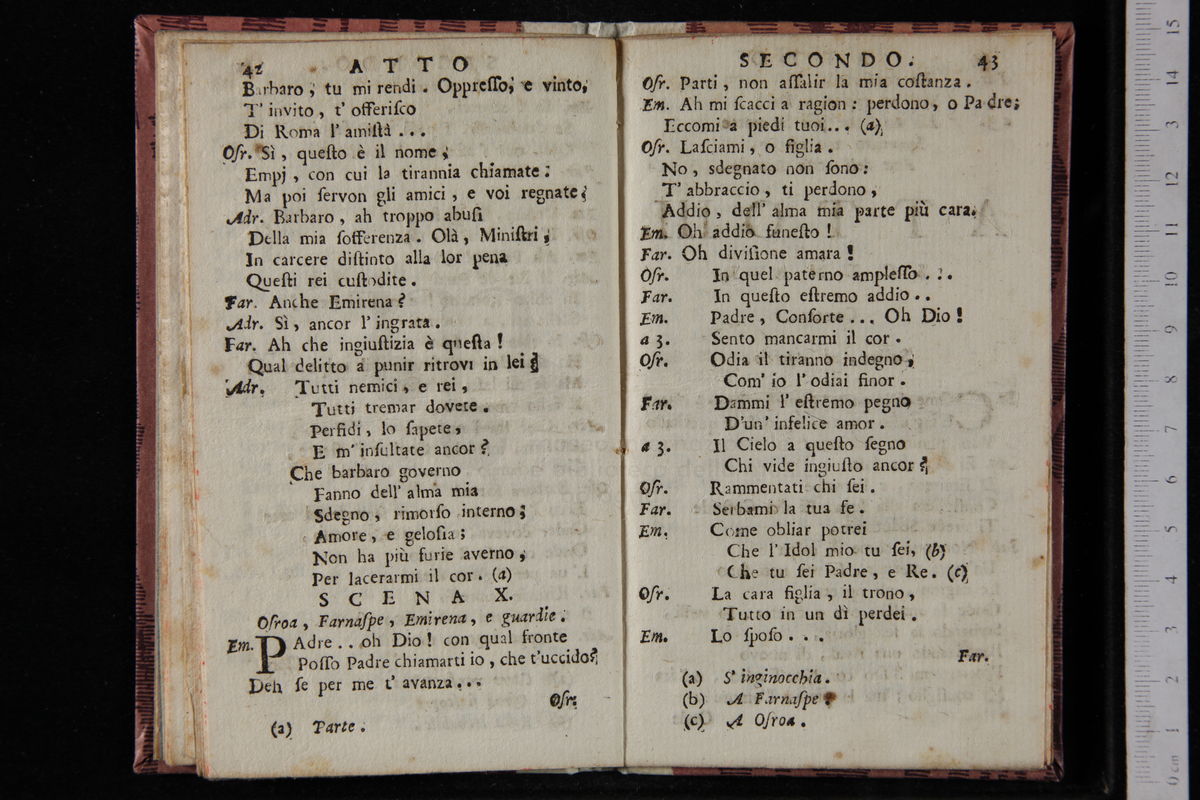 42 ATTO
Barbaro, tu mi rendi. Oppreſſo, e vinto,
T' invito, t' offeriſco
Di Roma l' amiſtà ...
Oſr. Sì, queſto è il nome,
Empj, con cui la tirannia chiamate:
Ma poi ſervon gli amici, e voi regnate;
Adr. Barbaro, ah troppo abuſi
Della mia ſofferenza. Olà, Miniſtri,
In carcere diſtinto alla lor pena
Queſti rei cuſtodite.
Far. Anche Emirena?
Adr. Sì, ancor l' ingrata.
Far. Ah che ingiuſtizia è queſta!
Qual delitto a punir ritrovi in lei?
Adr. Tutti nemici, e rei,
Tutti tremar dovete.
Perfidi, lo ſapete,
E m' inſultate ancor?
Che barbaro governo
Fanno dell' alma mia
Sdegno, rimorſo interno;
Amore, e geloſia;
Non ha più furie averno,
Per lacerarmi il cor. (a)
SCENA X.
Oſroa, Farnaſpe, Emirena, e guardie.
Em. PAdre .. oh Dio! con qual fronte
Poſſo Padre chiamarti io, che t'uccido?
Deh ſe per me t' avanza ...
Oſr.
(a) Parte.
SECONDO. 43
Oſr. Parti, non aſſalir la mia coſtanza.
Em. Ah mi ſcacci a ragion: perdono, o Padre;
Eccomi a piedi tuoi... (a)
Oſr. Laſciami, o figlia.
No, sdegnato non ſono:
T' abbraccio, ti perdono,
Addio, dell' alma mia parte più cara.
Em. Oh addio funeſto!
Far. Oh diviſione amara!
Oſr. In quel paterno ampleſſo ...
Far. In queſto eſtremo addio ..
Em. Padre, Conſorte ... Oh Dio!
a 3. Sento mancarmi il cor.
Oſr. Odia il tiranno indegno,
Com' io l' odiai finor.
Far. Dammi l' eſtremo pegno
D'un' infelice amor.
a 3. Il Cielo a queſto ſegno
Chi vide ingiuſto ancor?
Oſr. Rammentati chi ſei.
Far. Serbami la tua fe.
Em. Come obliar potrei
Che l' Idol mio tu ſei, (b)
Che tu ſei Padre, e Re. (c)
Oſr. La cara figlia, il trono,
Tutto in un dì perdei.
Em. Lo ſpoſo ...
Far.
(a) S' inginocchia.
(b) A Farnaſpe.
(c) A Oſroa.
0 cm 1 2 3 4 5 6 7 8 9 10 11 12 13 14 15